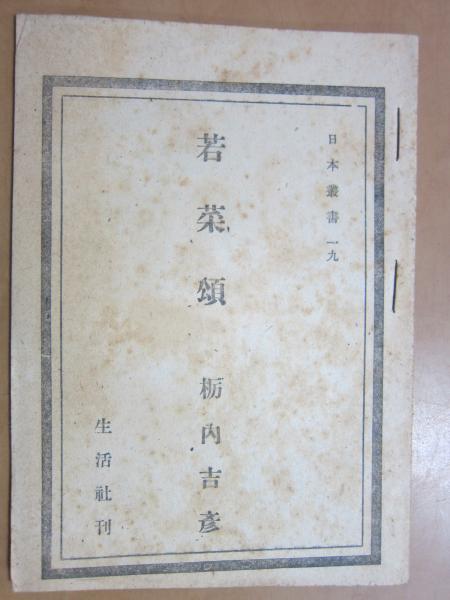 日本叢書一九
若菜頌
栃内吉彦
生活社刊